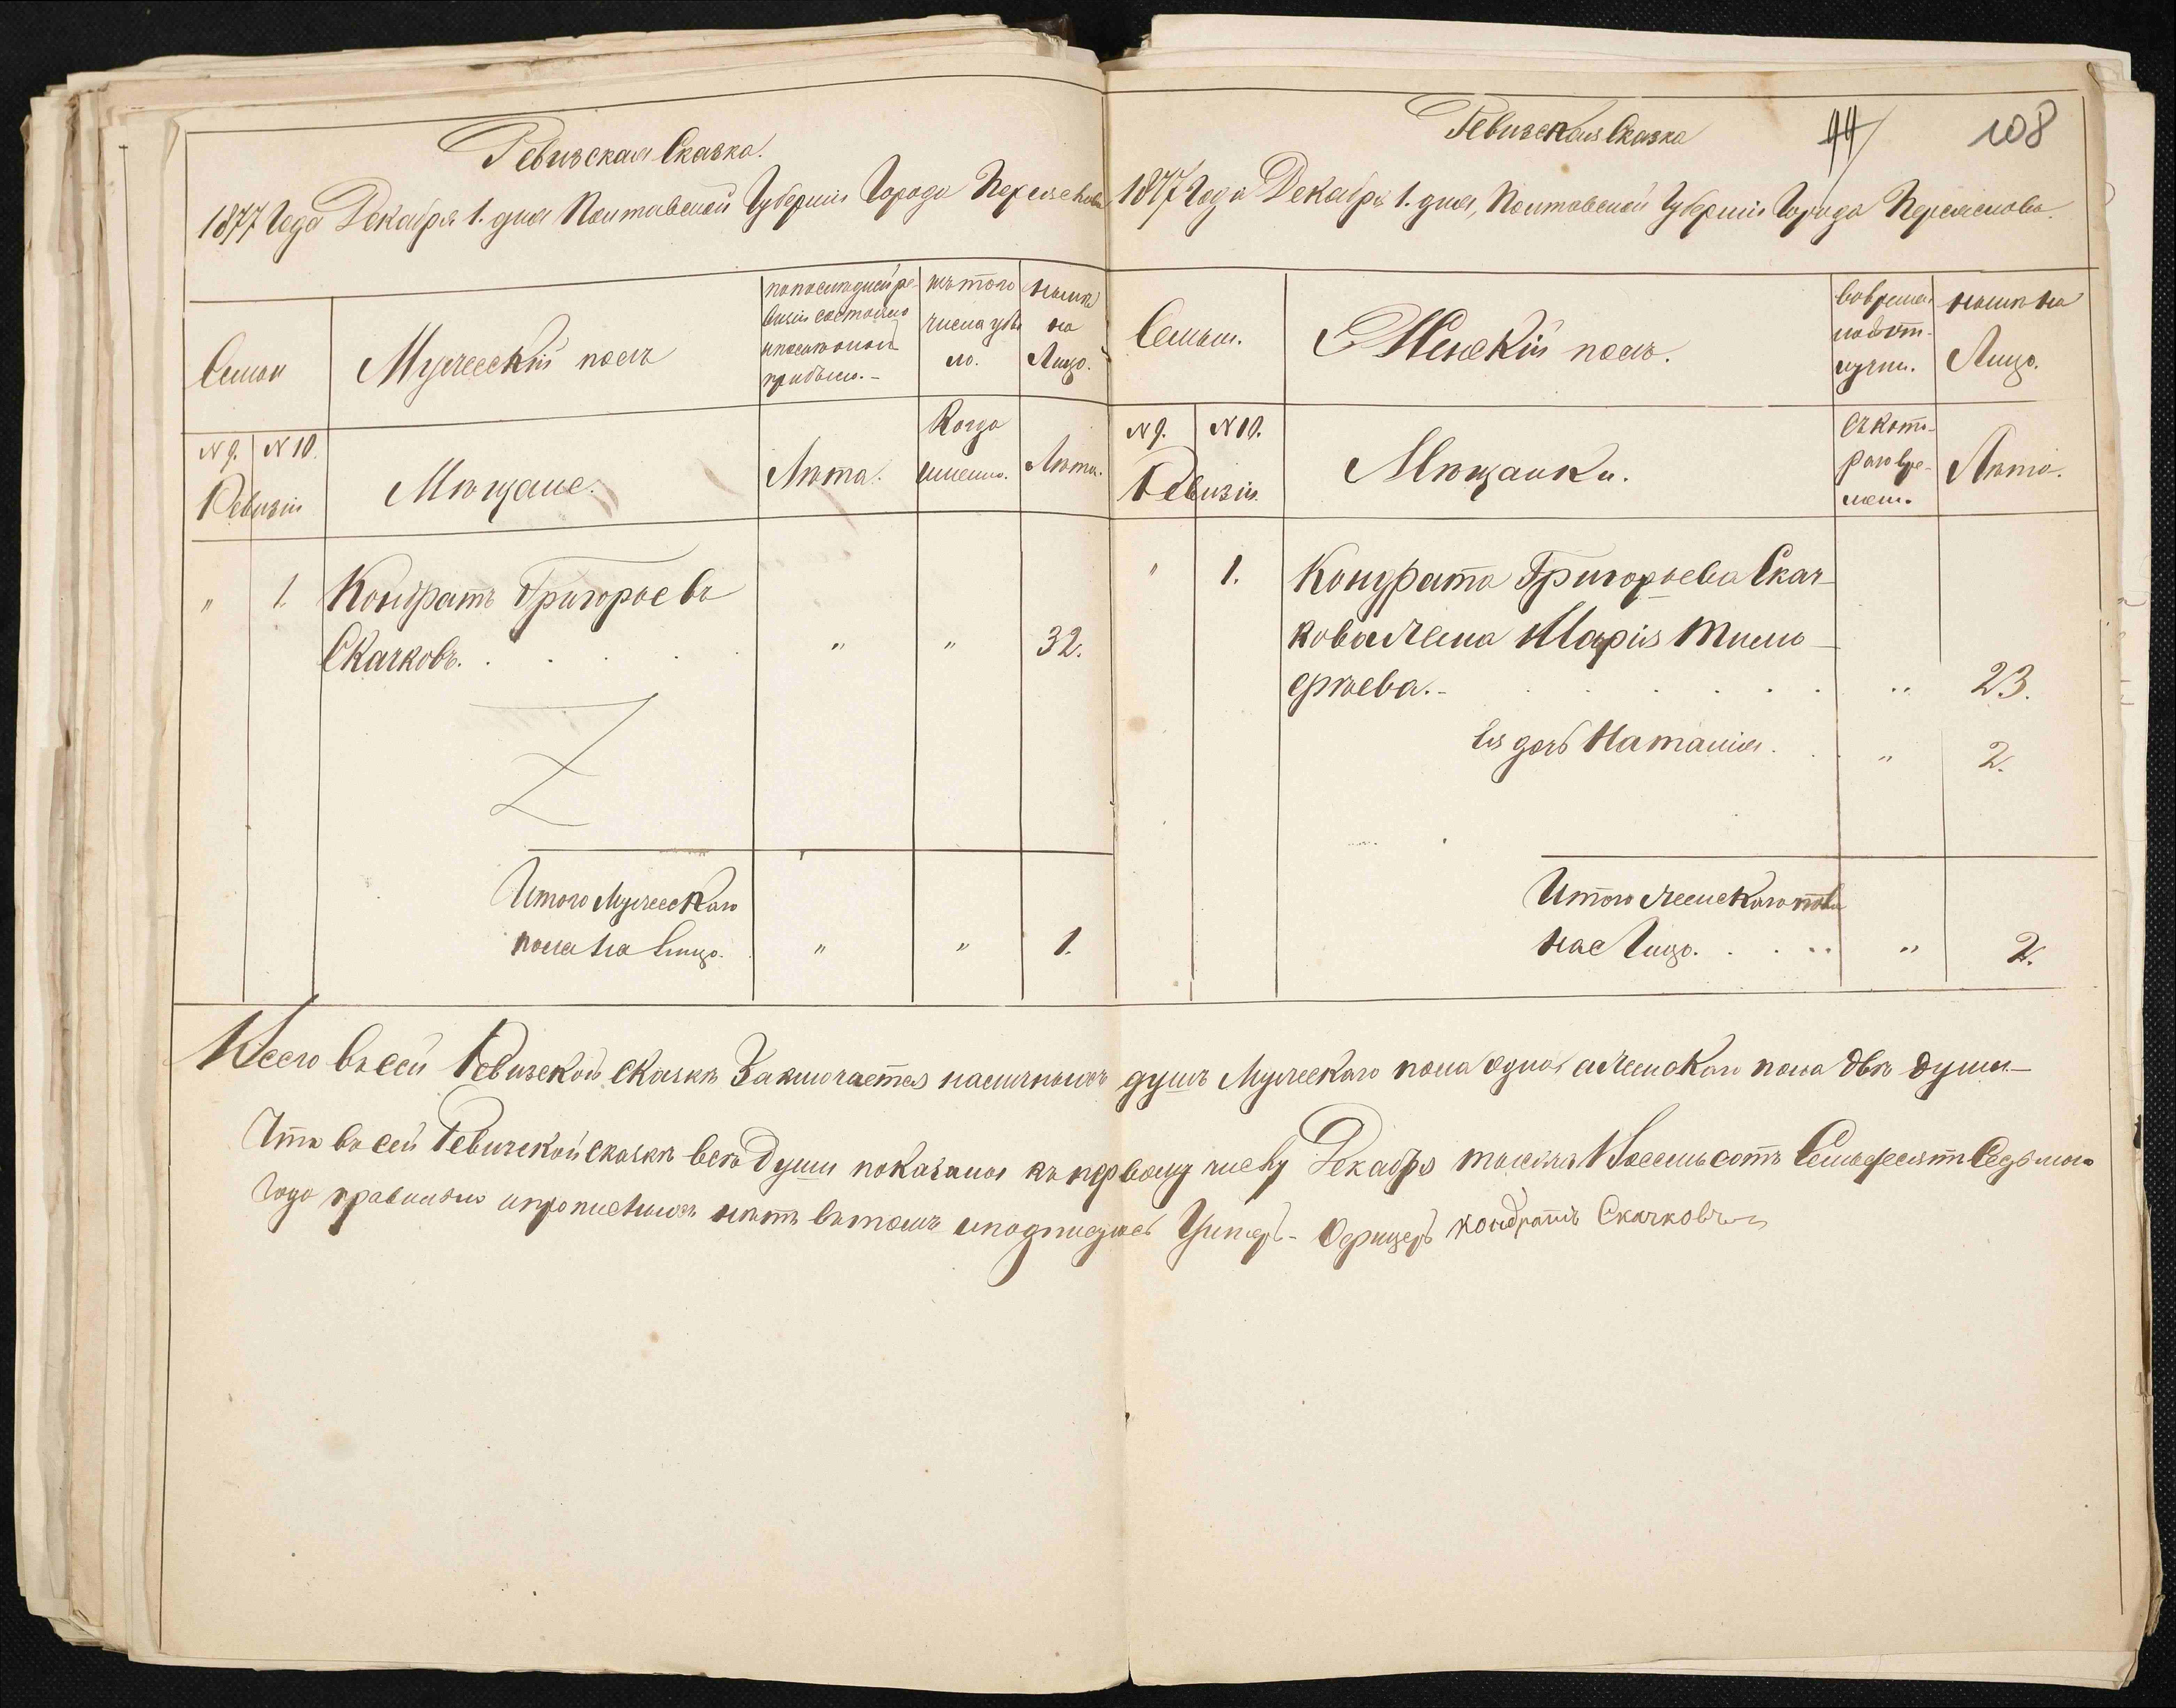 Ревизская Сказка.
1877 Года Декабря 1. дня Полтавской Губерніи Города Переяслова
Семьи
Мужеескій полъ
по послѣдней ре-
визіи состояло
и послѣ оной
прибыло.-
изъ того
числа убы
ло.
нынѣ
на
Лицо.
N 9.
N 10.
Ревизіи
Мѣщане.
Лѣта.
Когда
именно.
Лѣта.
"
1.
Кондратъ Григорьевъ
Скачковъ.
"
"
32.
Итого Мужеескаго
пола на Лицо.
"
"
1.
Ревизская Сказка
44
108
1877 Года Декабря 1. дня, Полтавской Губерніи Города Переяслова.
Семьи.
Женскій полъ.
во время
на Лицо.
нынѣ на
N 9.
N 10.
Ревизіи.
Мѣщанки.
Съ кото-
раго вре-
мени.
Лѣта.
"
1.
Кондрата Григорьева Скач-
кова жена Марія Тимо-
фѣева.-
"
23.
Ея дочь Наталія.
"
2.
Итого женскаго пола
на Лицо.
"
2.
Всего въ сей Ревизской сказкѣ Заключается наличныхъ душъ Мужескаго пола одна а женскаго пола двѣ души—
Что въ сей Ревизской сказкѣ всѣ Души показаны къ первому числу Декабря тысяча Восемьсотъ Семьдесятъ Седьмого
Года правильно и прописныхъ нѣтъ въ томъ и подписуюсь Унтеръ-Офицеръ Кондратъ Скачковъ